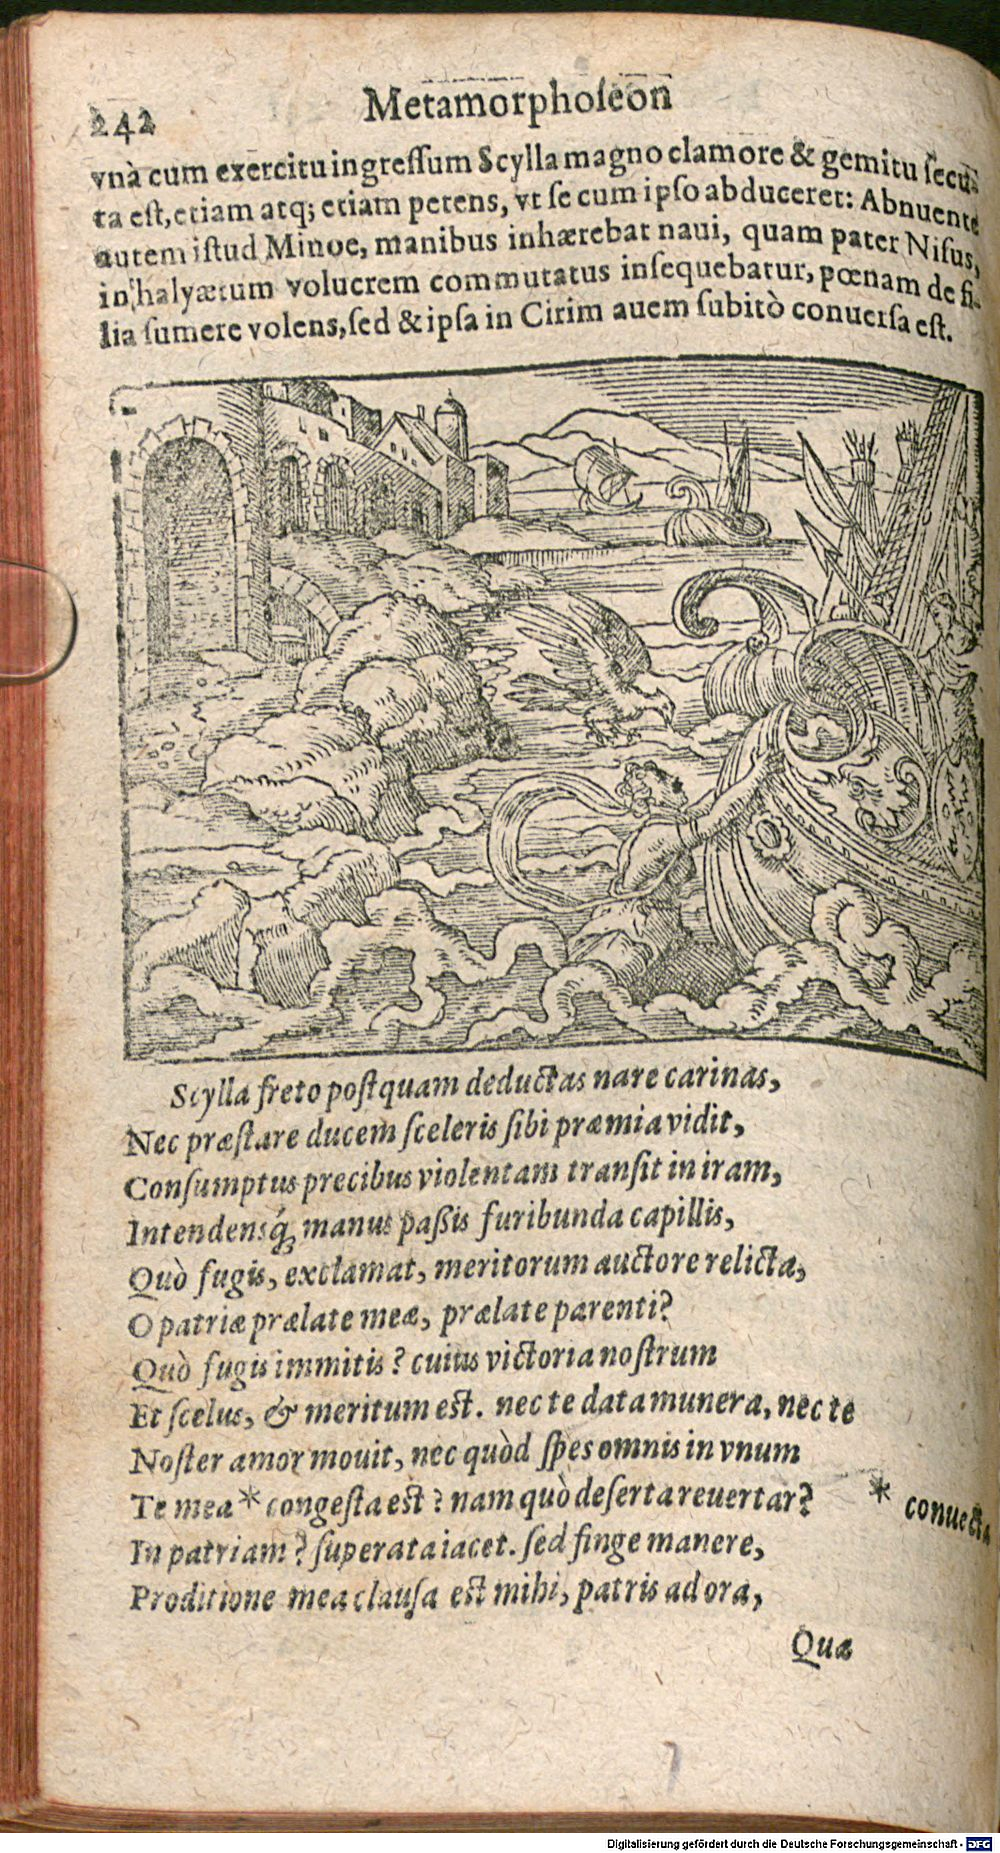 242
Metamorphoſeon
vnà cum exercitu ingreſſum Scylla magno clamore & gemitu ſecu-
ta eſt, etiam atq; etiam petens, vt ſe cum ipſo abduceret: Abnuente
autem iſtud Minoe, manibus inhærebat naui, quam pater Niſus,
in halyæetum volucrem commutatus inſequebatur, pœnam de fi-
lia ſumere volens, ſed & ipſa in Cirim auem ſubitò conuerſa eſt.
Scylla freto poſtquam deductas nare carinas,
Nec præſtare ducem ſceleris ſibi præmia vidit,
Conſumptus precibus violentam tranſit in iram,
Intendensq́; manus paßis furibunda capillis,
Quò fugis, exclamat, meritorum auctore relicta,
O patriæ prælate meæ, prælate parenti?
Quò fugis immitis? cuius victoria noſtrum
Et ſcelus, & meritum eſt. nec te data munera, nec te
Noſter amor mouit, nec quòd ſpes omnis in vnum
Te mea * congeſta eſt? nam quò deſerta reuertar?
* conuecta
In patriam? ſuperata iacet. ſed finge manere,
Proditione mea clauſa eſt mihi, patris ad ora,
Quæ
Digitalisierung gefördert durch die Deutsche Forschungsgemeinschaft - DFG